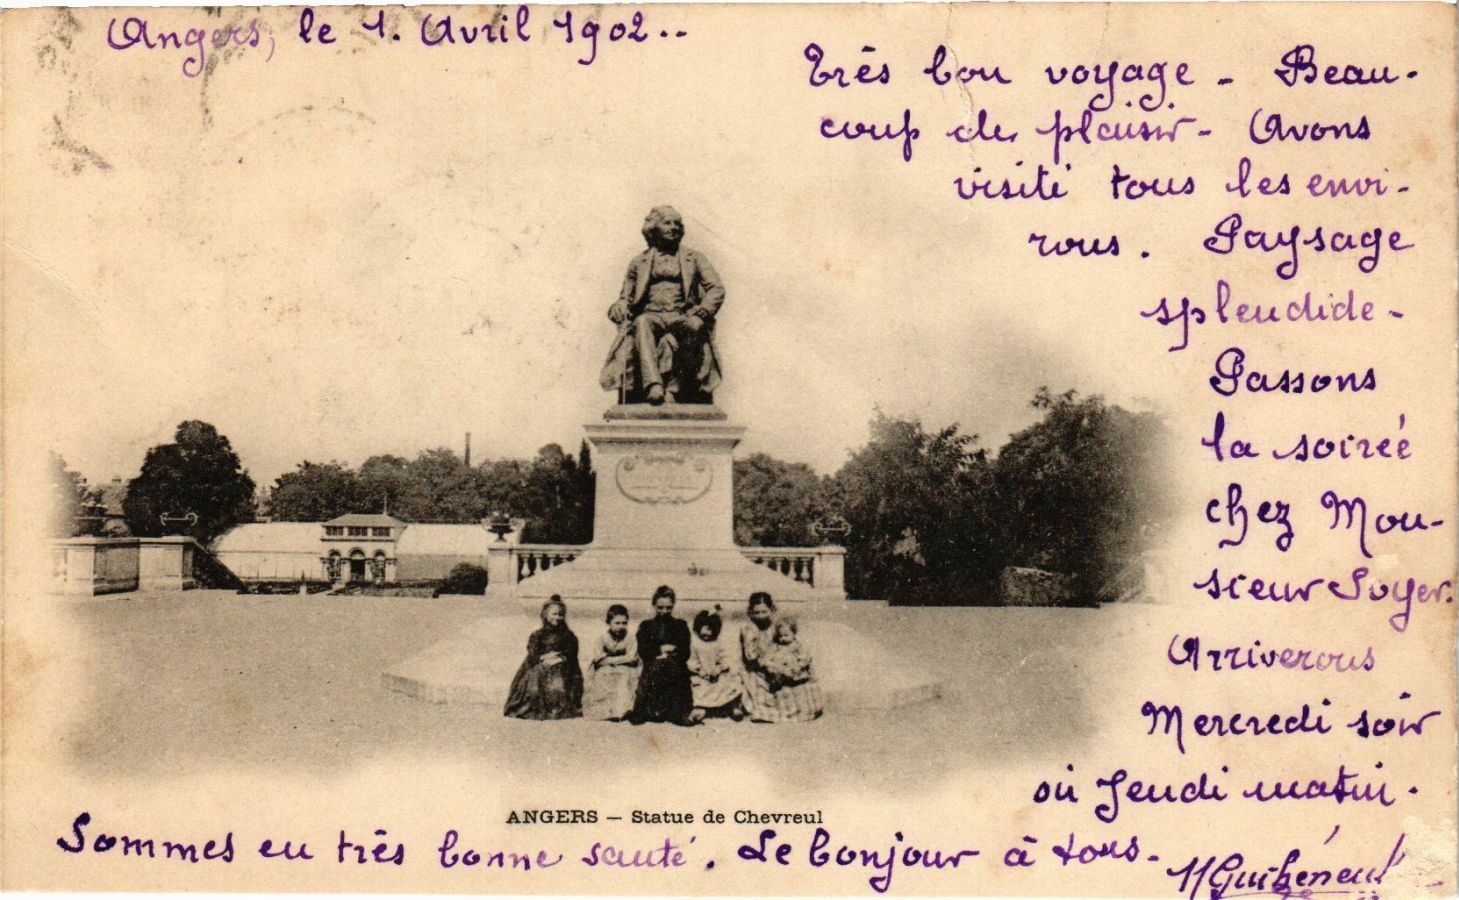 Angers, le 1. Avril 1902..
Très bon voyage - Beau-
coup de plaisir - Avons
visité tous les envi-
rons. Paysage
splendide -
Passons
la soirée
chez Mon-
sieur Soyer.
Arriverons
Mercredi soir
où Jeudi matin.
ANGERS — Statue de Chevreul
Sommes en très bonne santé. Le bonjour à tous.